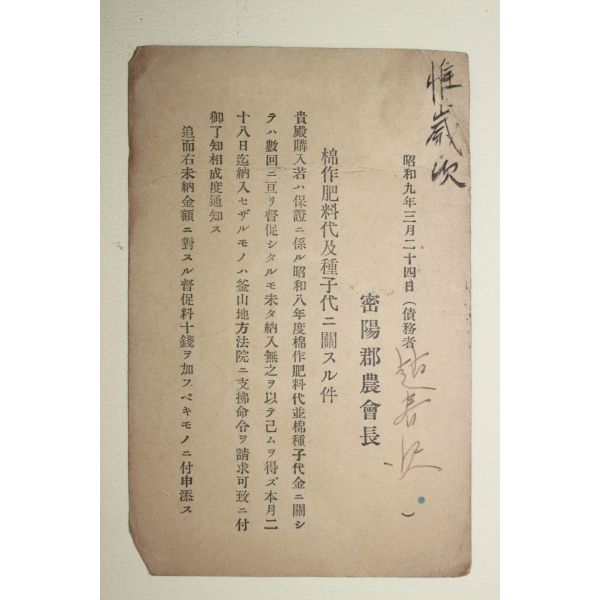 惟歲次
昭和九年三月二十四日（債務者 趙 ）
密陽郡農會長
棉作肥料代及種子代ニ關スル件
貴殿購入若ハ保證ニ係ル昭和八年度棉作肥料代並棉種子代金ニ關シ
テハ數回ニ亘リ督促シタルモ未タ納入無之ヲ以テ已ムヲ得ズ本月二
十八日迄納入セザルモノハ釜山地方法院ニ支拂命令ヲ請求可致ニ付
御了知相成度通知ス
追而右未納金額ニ對スル督促料十錢ヲ加フベキモノニ付申添ス